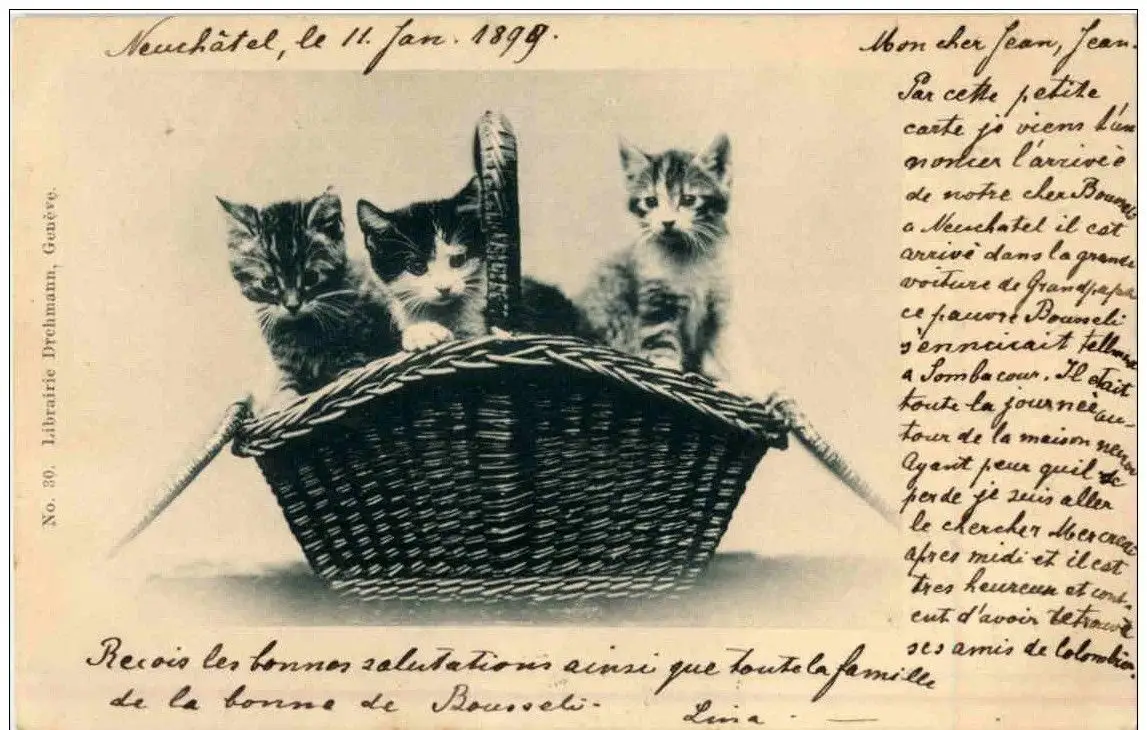 Neuchâtel, le 11. Jan. 1899.
Mon cher Jean, Jean.
Par cette petite
carte je viens t'an
noncer l'arrivèe
de notre cher Bousseli
a Neuchatel il est
arrivè dans la grande
voiture de Grandpapa
ce pauvre Bousseli
s'ennuiait tellment
a Sombacour. Il etait
toute la journèe au-
tour de la maison
Ayant peur quil se
perde je suis aller
le chercher Mercredi
apres midi et il est
tres heureux et cont-
ent d'avoir retrouvé
ses amis de Colombier.
Recois les bonnes salutations ainsi que toute la famille
de la bonne de Bousseli.
Lina.
No. 30. Librairie Drehmann, Genève.